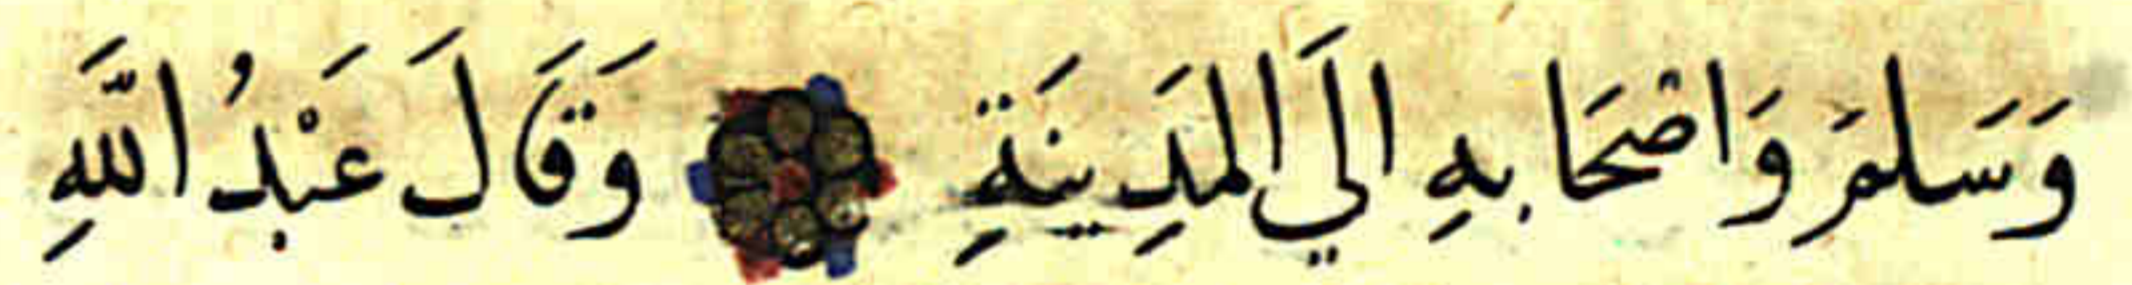 وَسَلمَ وَاصْحَابهِ الَي المَدِينَةِ وَقَالَ عَبْدُ اللَّهِ